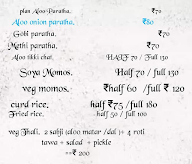 plan Aloo Paratha, ₹70
Aloo onion paratha, ₹80
Gobi paratha, ₹70
Methi paratha, ₹70
Aloo tikki chat, HALF 70 / Full 130
Soya Momos, Half 70 / full 130
veg momos, ₹half 60 /full ₹ 120
curd rice, half ₹75 /full 180
Fried rice, half 50 / full 100
veg Thali, 2 sabji (aloo matar /dal )+ 4 roti
tawa + salad + pickle
==₹ 200